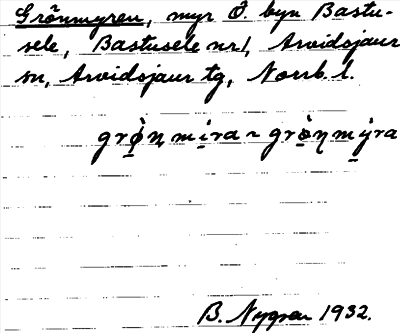 Grönmyren, myr Ö. byn Bastu-
sele, Bastusele nr 1, Arvidsjaur
sn, Arvidsjaur tg, Norrb. l.
grø̀n mira ~ grø̀n mýra
B. Nygren 1932.